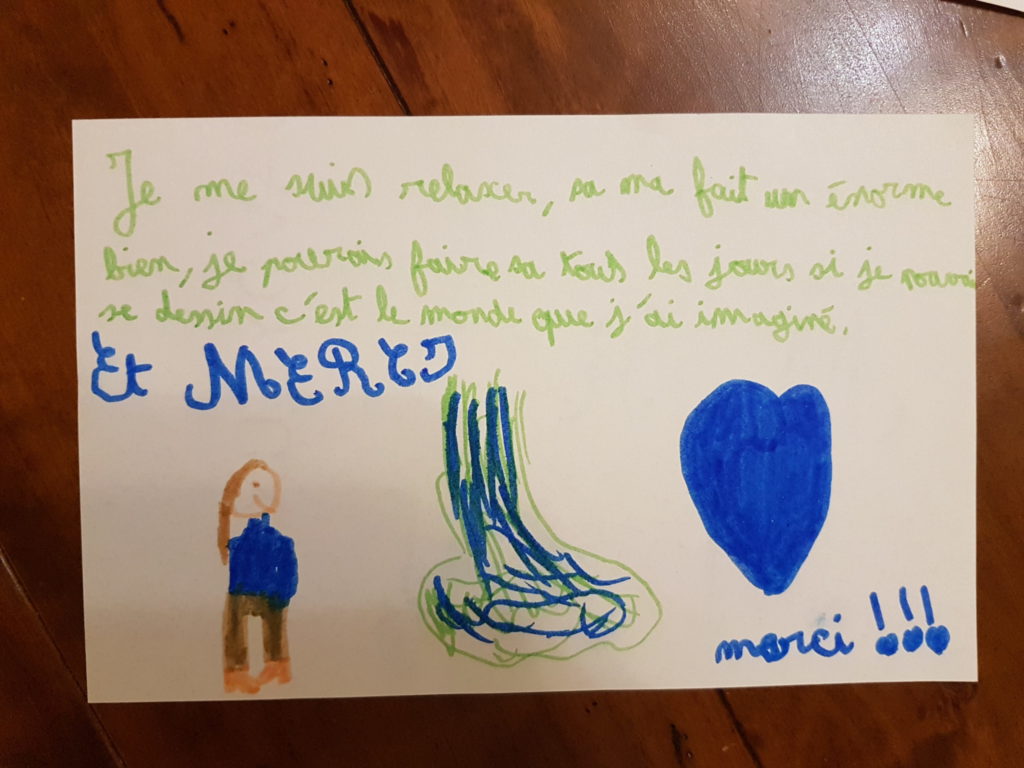 Je me suis relaxer, sa ma fait un énorme
bien, je pourais faire sa tous les jours si je
se dessin c'est le monde que j'ai imaginé.
Et MERCI
merci !!!